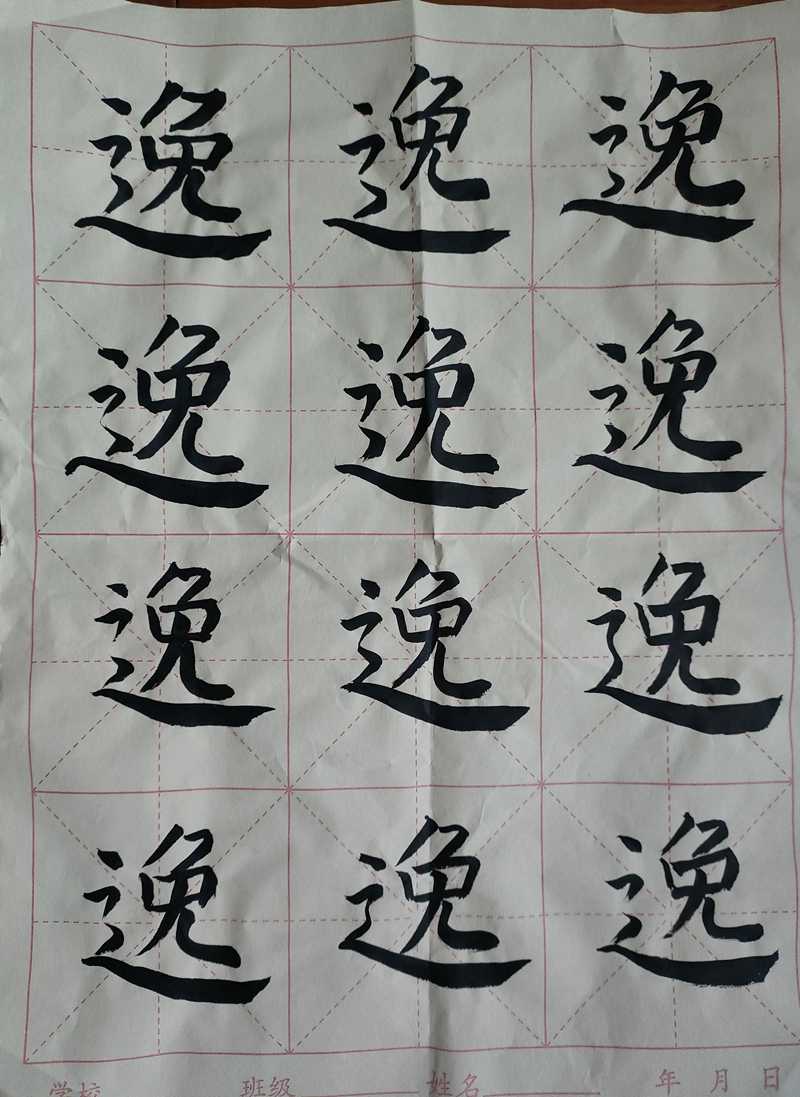 逸 逸 逸
逸 逸 逸
逸 逸 逸
逸 逸 逸
学校 班级 姓名 年 月 日